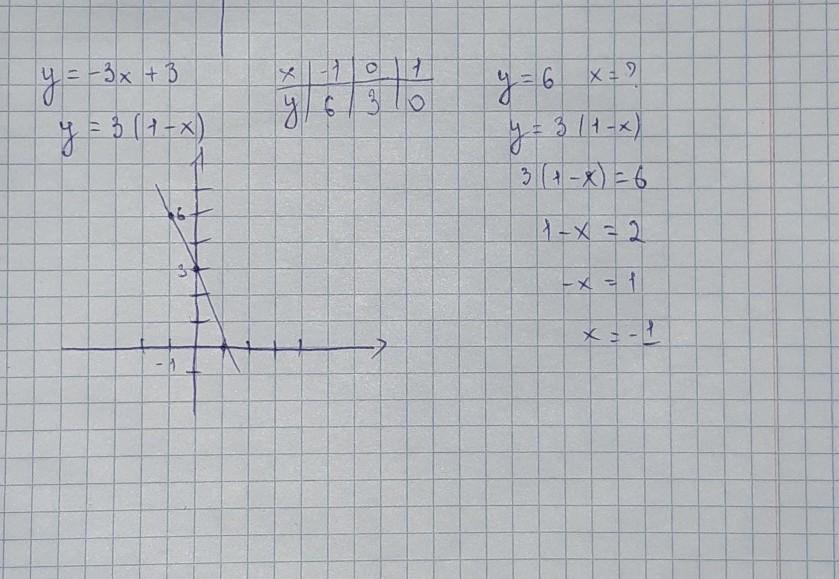 y = -3x + 3
y = 3(1-x)
x | -1 | 0 | 1
y | 6 | 3 | 0
6
3
-1
y = 6 x = ?
y = 3(1-x)
3(1-x) = 6
1-x = 2
-x = 1
x = -1